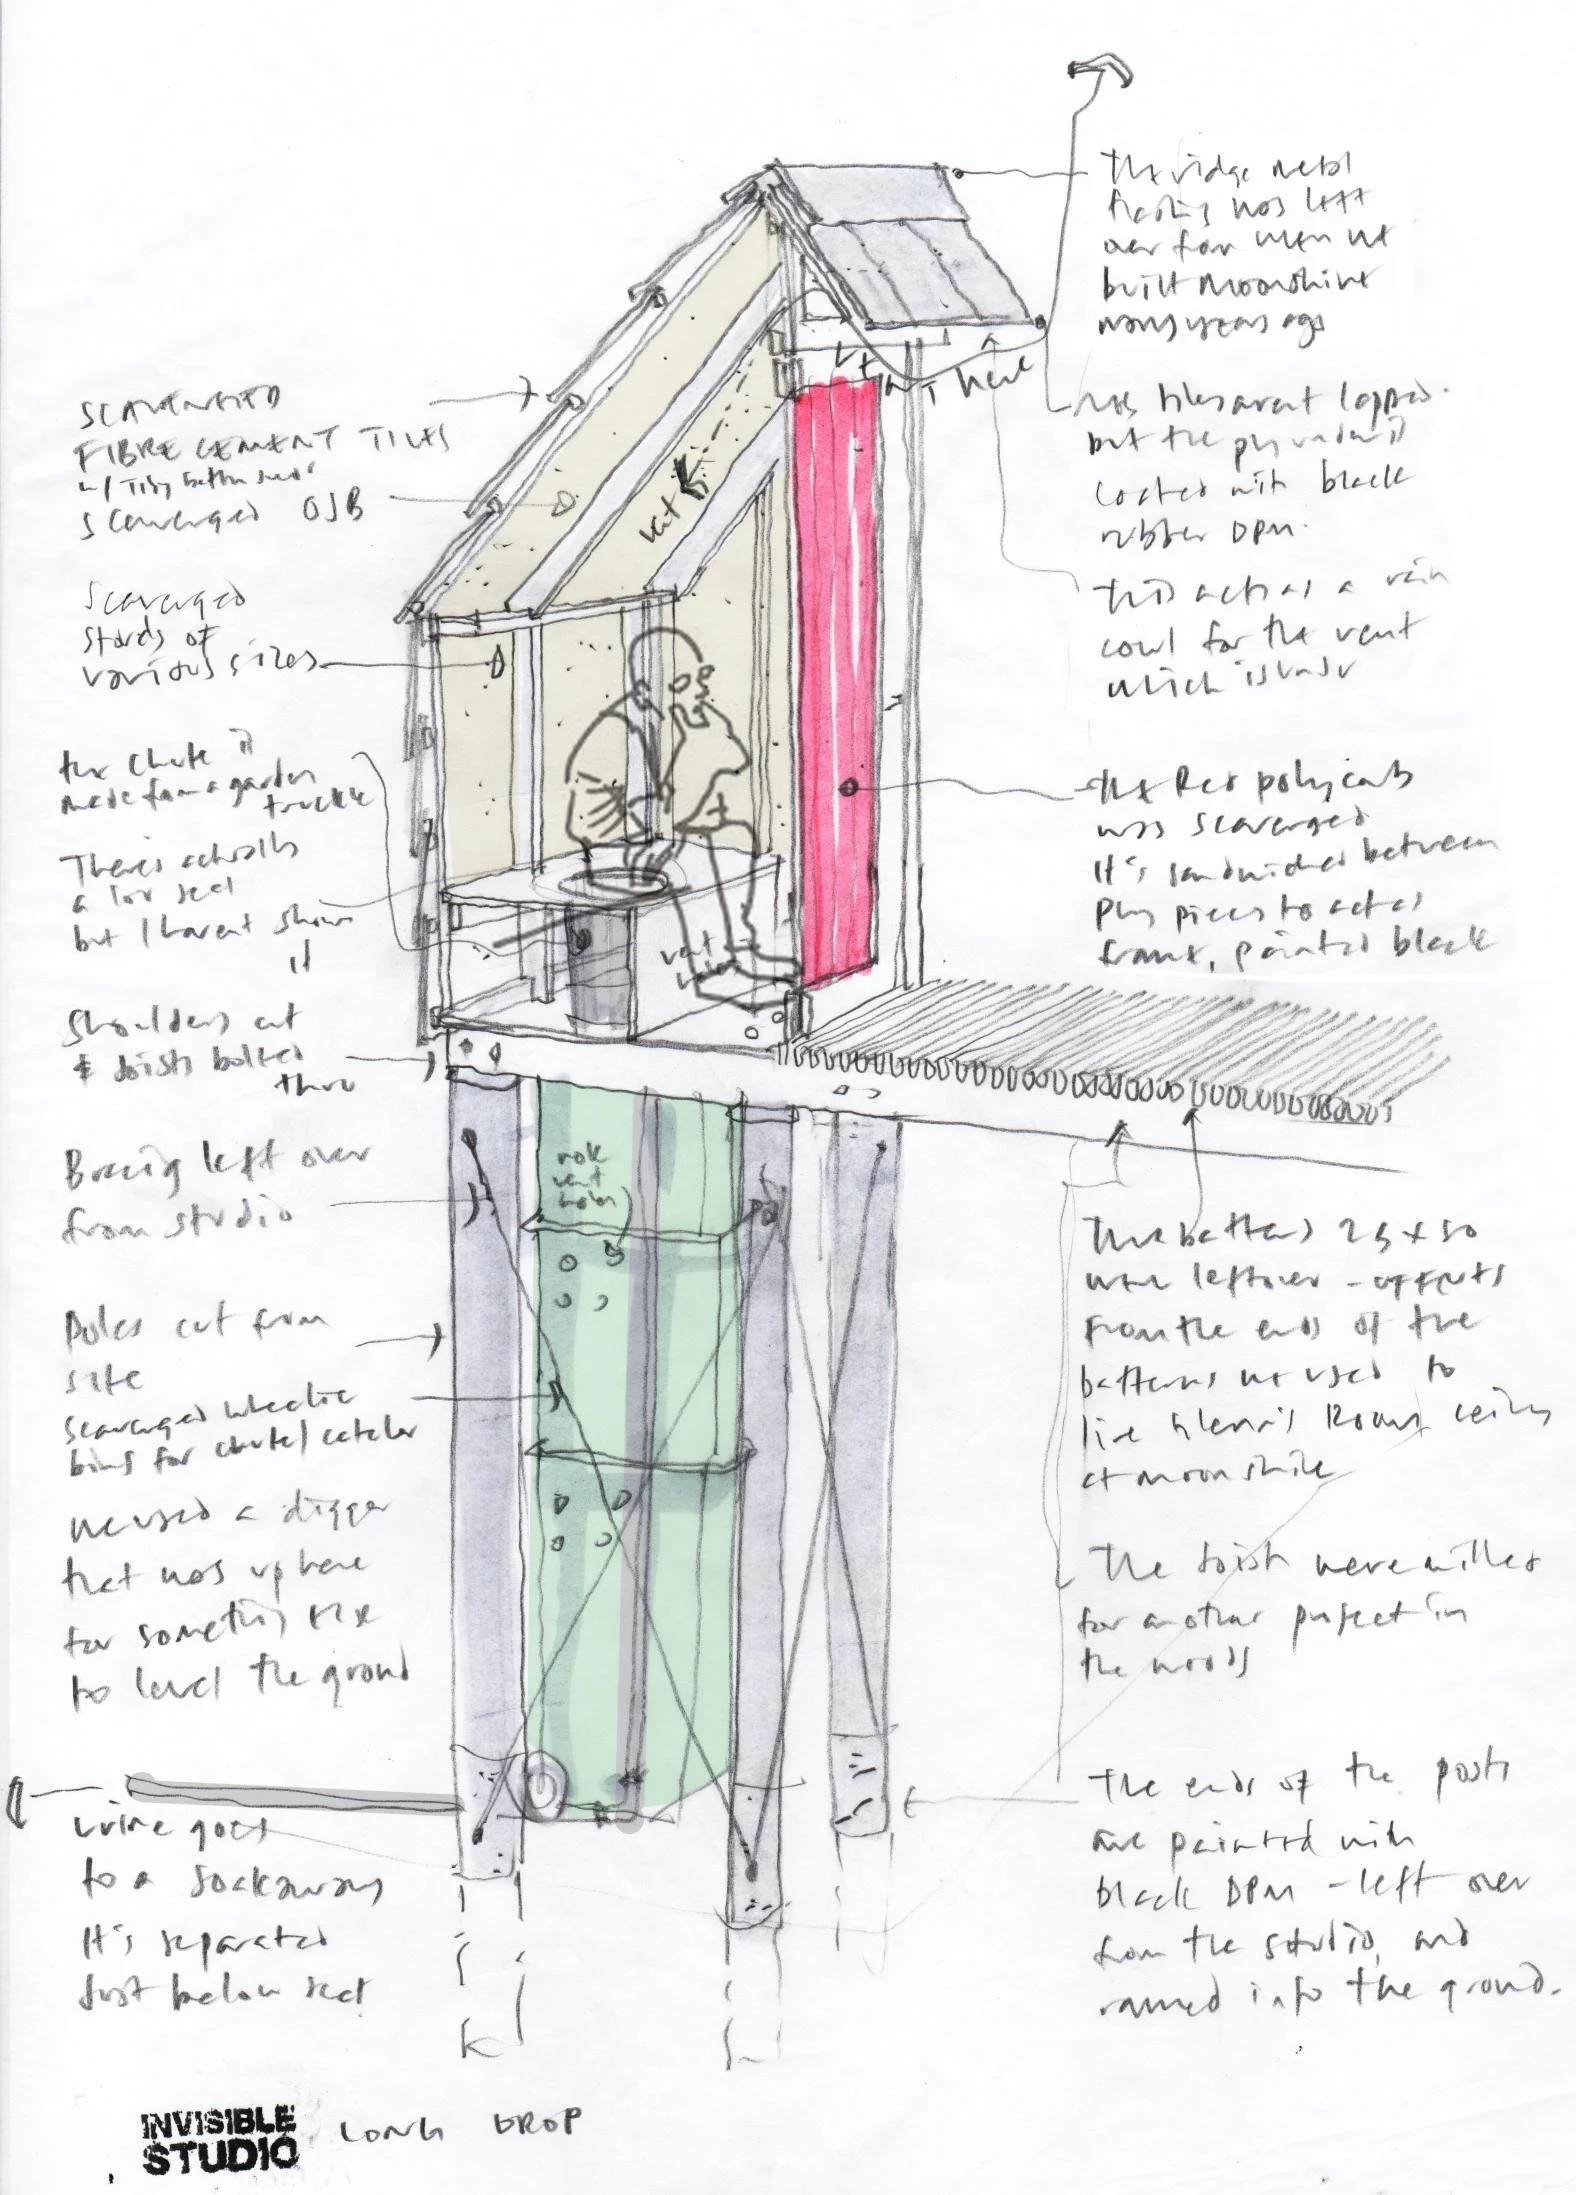 SCAVENGED
FIBRE CEMENT TILES
w/ Tiling batten under
scavenged OSB
Scavenged
studs of
various sizes
the chute is
made from a garden
truckle
There's actually
a loo seat
but I havent shown
it
Shoulders cut
& joists bolted
thru
Bracing left over
from studio
Poles cut from
site
scavenged wheelie
bins for chute/catcher
we used a digger
that was up here
for something else
to level the ground
urine goes
to a soakaway
It's separated
just below seat
vent
vent
holes
vent here
more
vent
holes
The ridge metal
flashing was left
over from when we
built Moonshine
many years ago
This tiles arent lapped.
but the ply under is
coated with black
rubber DPM.
this acts as a rain
cowl for the vent
which is under
the Red polycarb
was scavenged
It's sandwiched between
Ply pieces to act as
frame, painted black
The battens 25 x 50
were leftover - offcuts
from the ends of the
battens we used to
line Room ceiling
at moonshine
The joists were milled
for another project in
the woods
The ends of the posts
are painted with
black DPM - left over
from the studio, and
rammed into the ground.
INVISIBLE
STUDIO
LONG DROP